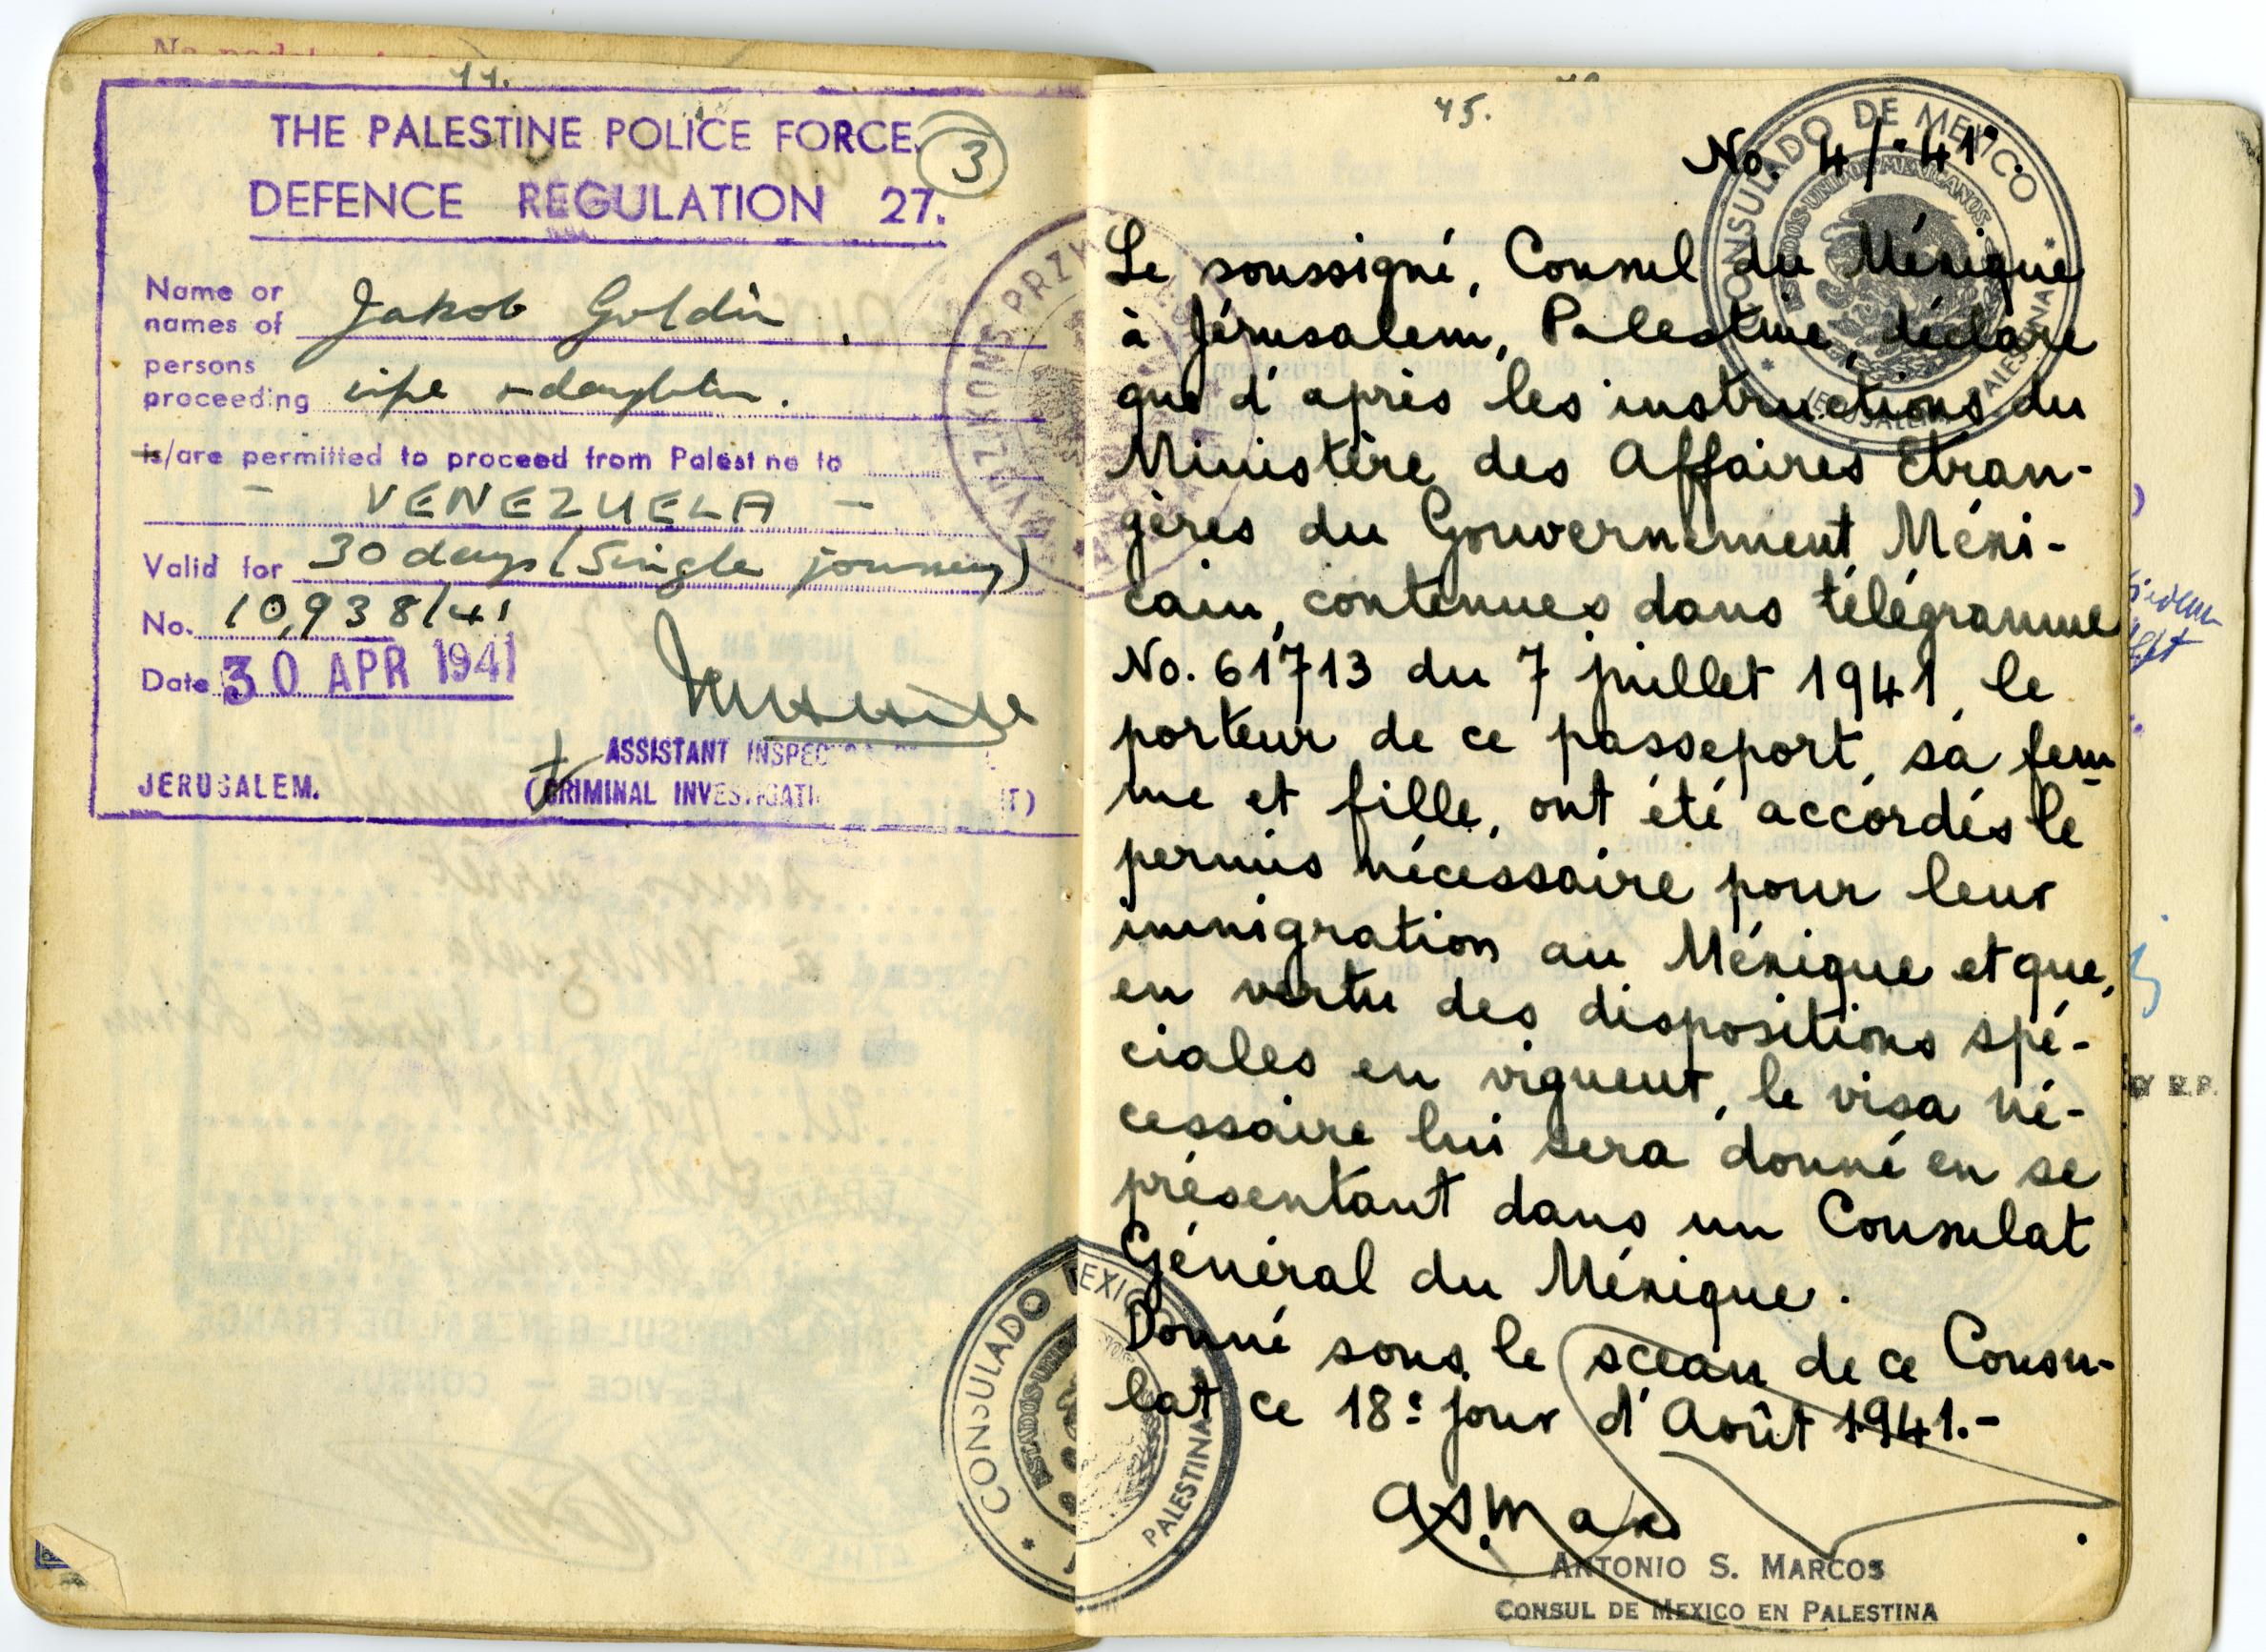 44.
THE PALESTINE POLICE FORCE.
3
DEFENCE REGULATION 27.
Name or names of Jakob Goldin,
persons proceeding wife + daughter.
is/are permitted to proceed from Palestine to
- VENEZUELA -
Valid for 30 days (Single journey)
No. 10,938/41
Date 30 APR 1941
ASSISTANT
JERUSALEM. (CRIMINAL
CONSULADO DE MEXICO
ESTADOS UNIDOS MEXICANOS
JERUSALEM PALESTINA
45.
No. 4/"41".
Le soussigné, Consul du Méxique
à Jérusalem, Palestine, déclare
que d'après les instructions du
Ministère des Affaires Etran-
gères du Gouvernement Méxi-
cain, contenues dans télégramme
No. 61713 du 7 juillet 1941, le
porteur de ce passeport, sa fem
me et fille, ont été accordés le
permis nécessaire pour leur
immigration au Méxique et que,
en vertu des dispositions spé-
ciales en vigueur, le visa né-
cessaire lui sera donné en se
présentant dans un Consulat
Général du Méxique.
Donné sous le sceau de ce Consu-
lat ce 18e jour d'Août 1941.-
CONSULADO MEXICO
PALESTINA
ANTONIO S. MARCOS
CONSUL DE MEXICO EN PALESTINA